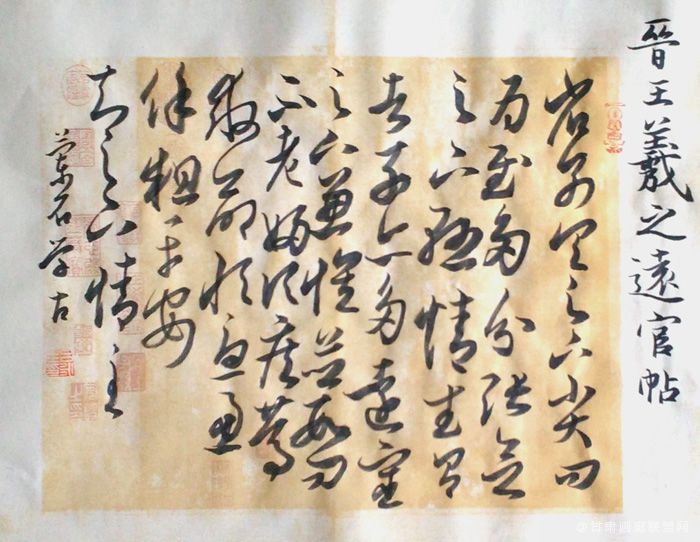 晉王羲之遠官帖
省別具足下小大問
為慰多分張念
足下懸情武昌
諸子亦多遠宦
足下兼懷並數問
不老婦頃疾篤
救命恒憂慮
餘粗平安
知足下情至
蘭石学古